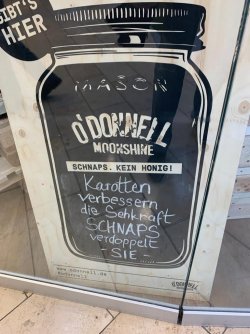 GIBT'S
HIER
MASON
O'DONNELL
MOONSHINE
SCHNAPS. KEIN HONIG!
Karotten
verbessern
die Sehkraft
SCHNAPS
verdoppelt
- SIE -
www.odonnell.de
O'DONNELL
MOONSHINE